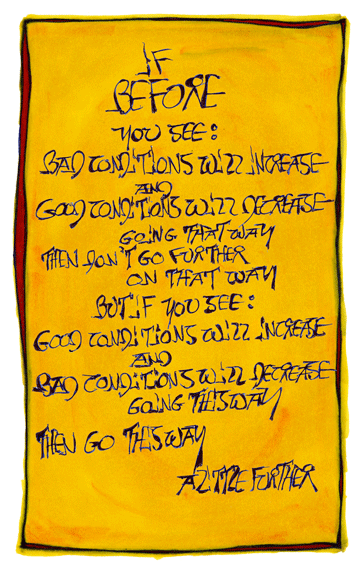 IF
BEFORE
YOU SEE:
BAD CONDITIONS WILL INCREASE
AND
GOOD CONDITIONS WILL DECREASE
GOING THAT WAY
THEN DON'T GO FURTHER
ON THAT WAY
BUT IF YOU SEE:
GOOD CONDITIONS WILL INCREASE
AND
BAD CONDITIONS WILL DECREASE
GOING THIS WAY
THEN GO THIS WAY
A LITTLE FURTHER